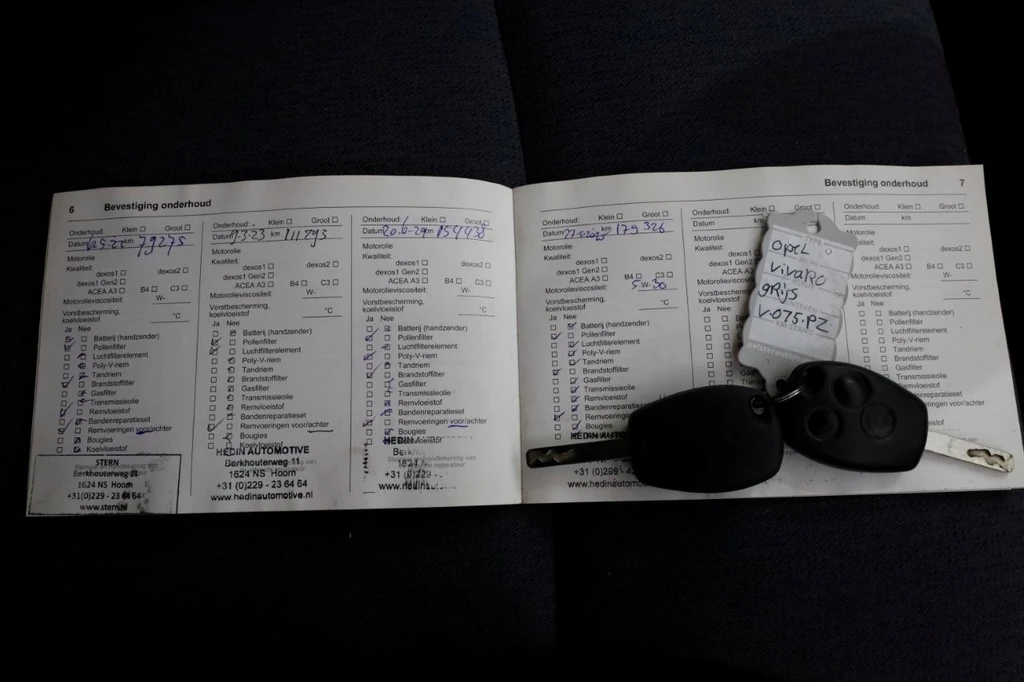 6 Bevestiging onderhoud
Onderhoud: Klein Groot
Datum km 79275
Motorolie
Kwaliteit:
dexos1 dexos2
dexos1 Gen2
ACEA A3 B4 C3
Motorolieviscositeit: W-
Vorstbescherming, koelvloeistof °C
Ja Nee
Batterij (handzender)
Pollenfilter
Luchtfilterelement
Poly-V-riem
Tandriem
Brandstoffilter
Gasfilter
Transmissieolie
Remvloeistof
Bandenreparatieset
Remvoeringen voor/achter
Bougies
Koelvloeistof
STERN
Berkhouterweg 11
1624 NS Hoorn
+31(0)229 - 23 64 64
www.stern.nl
Onderhoud: Klein Groot
Datum 7-3-23 km 111293
Motorolie
Kwaliteit:
dexos1 dexos2
dexos1 Gen2
ACEA A3 B4 C3
Motorolieviscositeit: W-
Vorstbescherming, koelvloeistof °C
Ja Nee
Batterij (handzender)
Pollenfilter
Luchtfilterelement
Poly-V-riem
Tandriem
Brandstoffilter
Gasfilter
Transmissieolie
Remvloeistof
Bandenreparatieset
Remvoeringen voor/achter
Bougies
Koelvloeistof
HEDIN AUTOMOTIVE
Berkhouterweg 11
1624 NS Hoorn
+31 (0)229 - 23 64 64
www.hedinautomotive.nl
Onderhoud: Klein Groot
Datum 20.6-24 km 154438
Motorolie
Kwaliteit:
dexos1 dexos2
dexos1 Gen2
ACEA A3 B4 C3
Motorolieviscositeit: W-
Vorstbescherming, koelvloeistof °C
Ja Nee
Batterij (handzender)
Pollenfilter
Luchtfilterelement
Poly-V-riem
Tandriem
Brandstoffilter
Gasfilter
Transmissieolie
Remvloeistof
Bandenreparatieset
Remvoeringen voor/achter
Bougies
HEDIN
Bevestiging onderhoud 7
Onderhoud: Klein Groot
Datum 22-5-2025 km 179326
Motorolie
Kwaliteit:
dexos1 dexos2
dexos1 Gen2
ACEA A3 B4 C3
Motorolieviscositeit: 5 W-30
Vorstbescherming, koelvloeistof °C
Ja Nee
Batterij (handzender)
Pollenfilter
Luchtfilterelement
Poly-V-riem
Tandriem
Brandstoffilter
Gasfilter
Transmissieolie
Remvloeistof
Bandenreparatieset
Remvoeringen
HEDIN AU
Berkhouterw
1624 NS
+31 (0)229
www.hedinautomo
Onderhoud: Klein
Datum
Motorolie
Kwaliteit:
dexos1
dexos1 Gen2
ACEA A3
Motorolieviscositeit:
Vorstbescherming, koelvloeistof
Ja Nee
OPEL
VIVARO
gRIJS
V-075-PZ
Onderhoud: Klein Groot
Datum km
dexos2
B4 C3
W-
°C
Batterij (handzender)
Pollenfilter
Luchtfilterelement
Poly-V-riem
Tandriem
Brandstoffilter